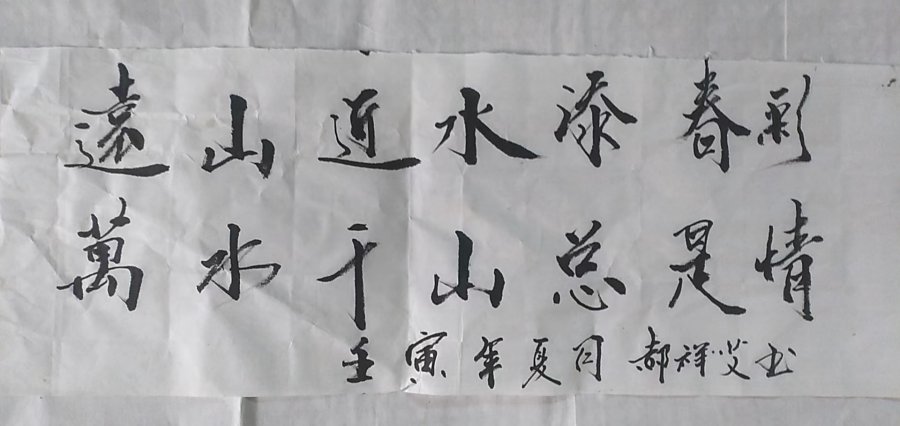 遠山近水添春彩
萬水千山总是情
壬寅年夏月郝祥艾书